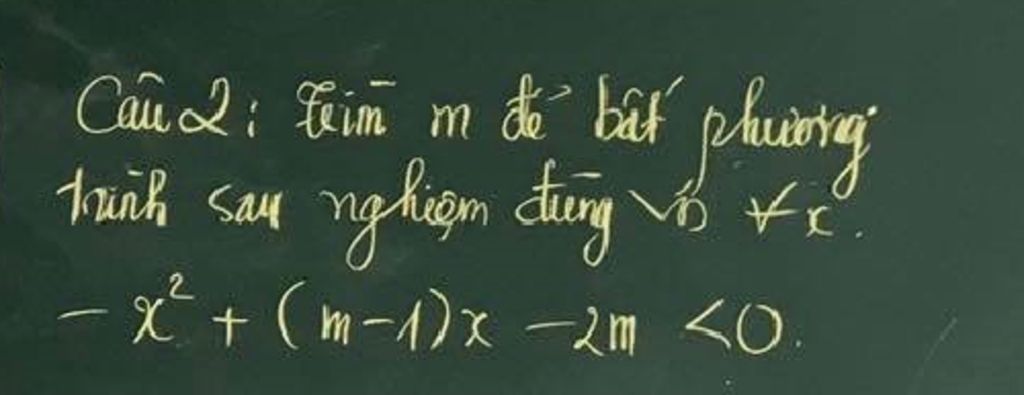 Câu 2: Tìm m để bất phương
trình sau nghiệm đúng với ∀x.
-x² + (m-1)x - 2m < 0.